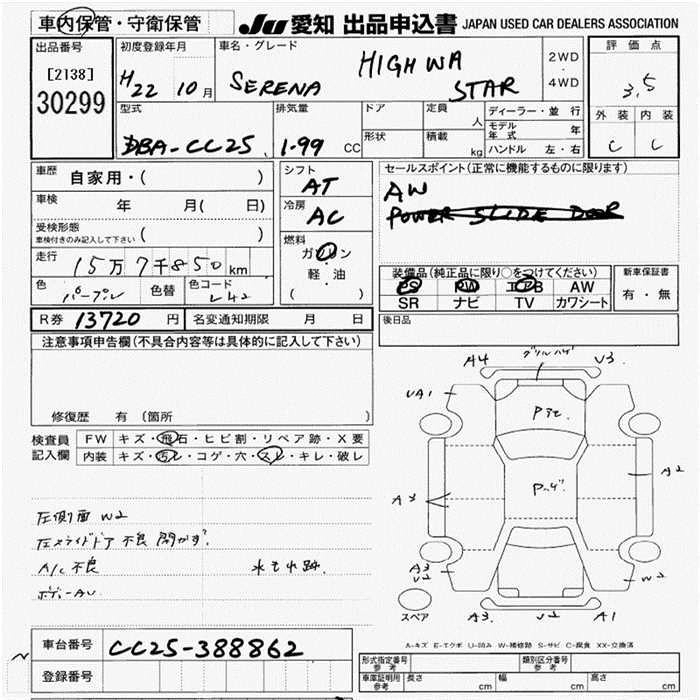 車内保管・守衛保管
JU 愛知 出品申込書 JAPAN USED CAR DEALERS ASSOCIATION
出品番号
[2138]
30299
初度登録年月
H22 10月
車名・グレード
SERENA HIGHWA STAR
2WD
・
4WD
評価点
3.5
外装 内装
C C
型式
DBA-CC25
排気量
1.99 CC
ドア
形状
定員 人
積載 kg
ディーラー・並行
モデル年式 年
ハンドル 左・右
車歴
自家用・( )
車検 年 月( 日)
受検形態
車検付きのみ記入して下さい ( )
走行
15万7千850km
色 パープル 色替 色コード L42
シフト
AT
冷房
AC
燃料
ガソリン
軽・油
( )
セールスポイント(正常に機能するものに限ります)
AW
POWER SLIDE DOOR
装備品(純正品に限り○をつけてください)
PS PW エアB AW
SR ナビ TV カワシート
新車保証書
有・無
R券 13720 円 名変通知期限 月 日
後日品
注意事項申告欄(不具合内容等は具体的に記入して下さい)
修復歴 有 (箇所 )
検査員
記入欄
FW キズ・飛石・ヒビ割・リペア跡・X要
内装 キズ・汚レ・コゲ・穴・スレ・キレ・破レ
左側面 W2
左スライドドア 不良 開かず.
A/C 不良 水もれ跡.
ボディーAU
A4
V3
UA1
A2
A3
A3
V2
W2
A3
V2
A1
スペア
A-キズ E-エクボ U-凹み W-補修跡 S-サビ C-腐食 XX-交換済
車台番号 CC25-388862
登録番号
形式指定番号 参考
類別区分番号 参考
車庫証明用 参考 長さ cm 幅 cm 高さ cm